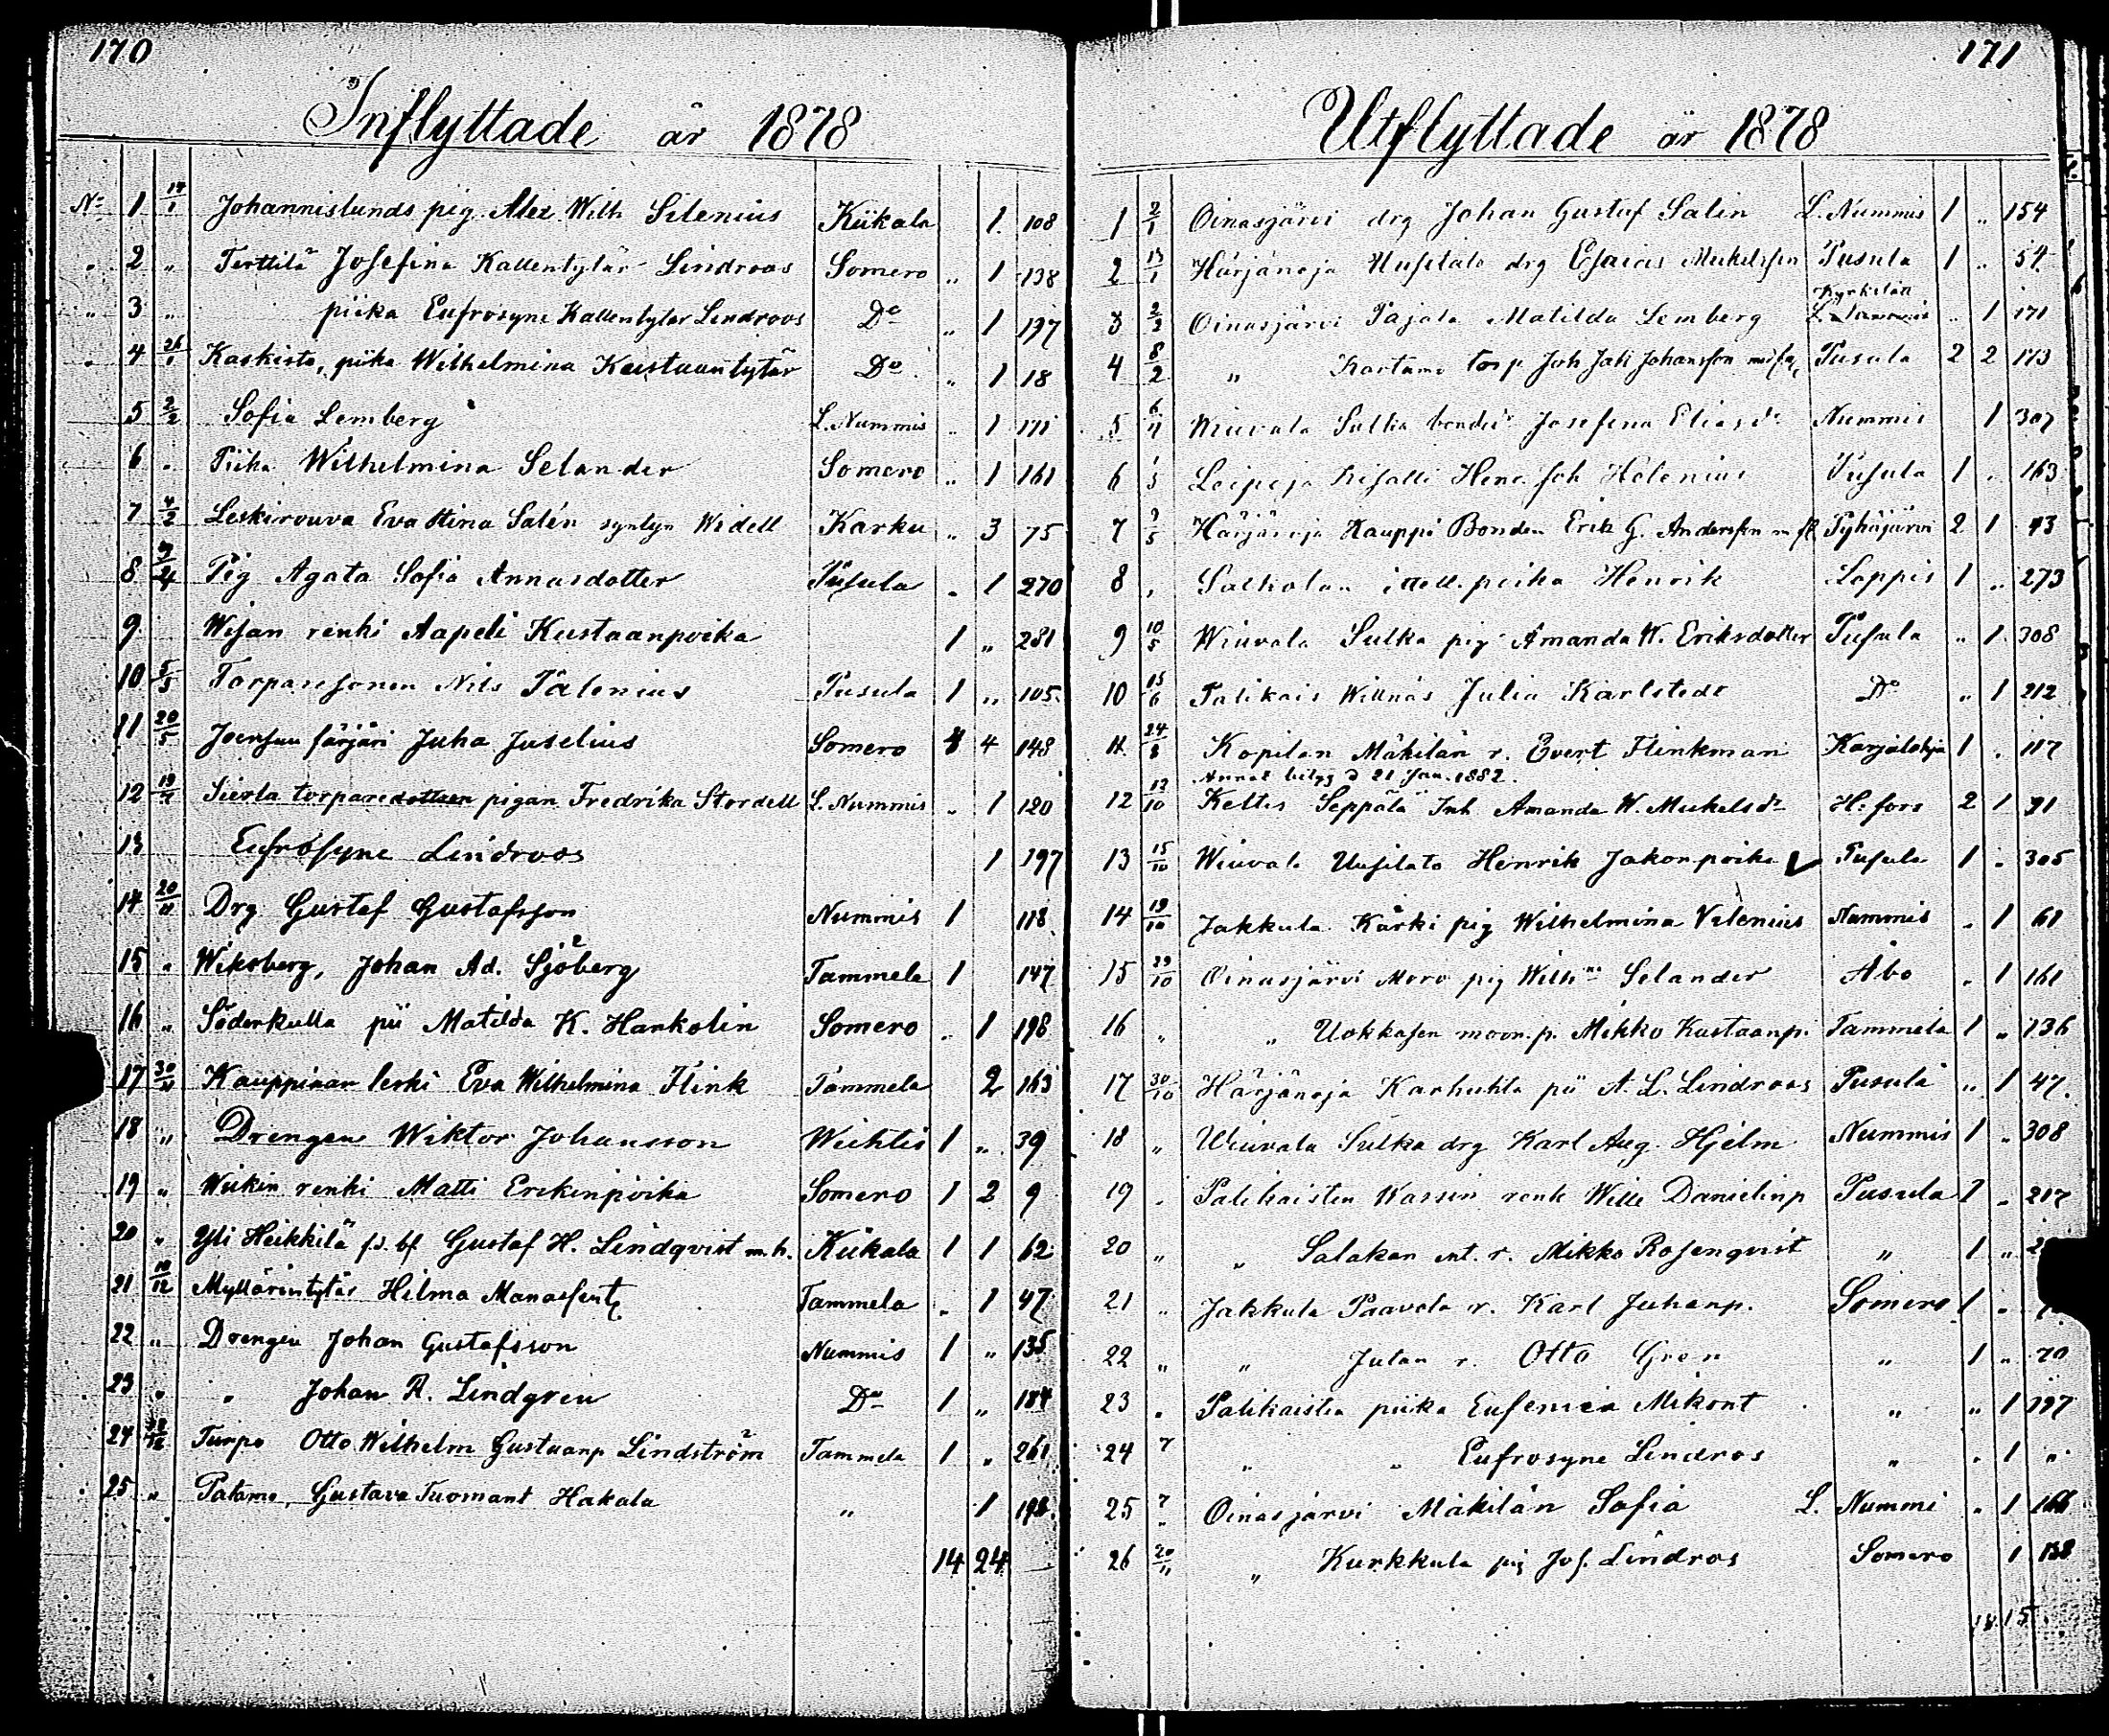 170
Inflyttade år 1878
No 1 17/1 Johannislunds pig. Alex Wilh Silenius Kiikala 1. 108
" 2 " Terttilä Josefina Kallentytär Lindroos Somero " 1 138
" 3 " piika Eufrosyne Kallentytär Lindroos Do " 1 197
" 4 26/1 Kaskisto, piika Wilhelmina Kustaantytär Do " 1 18
5 2/2 Sofia Lemberg L. Nummis " 1 171
6 " Piika Wilhelmina Selander Somero " 1 161
7 4/2 Leskirouva Eva Stina Salén syntyn Widell Karku " 3 75
8 Pig Agata Sofia Annasdotter Pusula " 1 270
9 Wisan renki Aapeli Kustaanpoika 1 " 281
10 5/5 Torparesonen Nils Tälenius Pusula 1 " 105.
11 20/5 Joensuu färjäri Juha Juselius Somero 4 148
12 Sierla torparedottren pigan Fredrika Stordell L. Nummis " 1 120
13 Eufrosyne Lindroos 1 197
14 20/11 Drg Gustaf Gustafsson Nummis 1 118
15 " Wiksberg, Johan Ad. Sjöberg Tammela 1 147
16 " Söderkulla pii Matilda K. Harkolin Somero " 1 198
17 30/11 Kauppiaan leski Eva Wilhelmina Flink Tammela 2 163
18 " Drengen Wiktor Johansson Wichtis 1 " 39
19 " Wiikin renki Matti Erikinpoika Somero 1 2 9
20 " Yli Heikkilä fd. bf Gustaf H. Lindqvist m. h. Kiikala 1 1 62
21 10/12 Myllärintytär Hilma Manassent Tammela " 1 47
22 " Drengen Johan Gustafsson Nummis 1 " 135
23 " " Johan R. Lindgren Do 1 " 184
24 Turpo Otto Wilhelm Gustaanp Lindström Tammela 1 " 261
25 " Patamo, Gustava Tuomant Hakala " 1 198.
14 24
171
Utflyttade år 1878
1 2/1 Oinasjärvi drg Johan Gustaf Salin L. Nummis 1 " 154
2 13/1 Härjänoja Uusitalo drg Esaias Mickelsson Pusula 1 " 54
Kyrkslätt
3 2/2 Oinasjärvi Pajala Matilda Lemberg L. " 1 171
4 8/2 " Kartamo torp Joh Jali Johansson med fa Pusula 2 2 173
5 Wiuvala Sulka bonded Josefina Eliasdr Nummis 1 307
6 Leipoja Henr. Joh Helenius Pusula 1 " 163
7 Härjänoja Kauppi Bonden Erik G. Andersson m fl Pyhäjärvi 2 1 43
8 " Salkolan itell. poika Henrik Loppis 1 " 273
9 10/5 Wiuvala Sulka pig Amanda W. Eriksdotter Pusula " 1 308
10 15/6 Palikais Willnäs Julia Karlstedt Do " 1 212
11. 24/8 Kopilan Mäkilän r. Evert Flinkman Karjalohja 1 " 117
Annat betyg d 21 Jan. 1882.
12 12/10 Keltis Seppälä Inh Amanda W. Mickelsdr H:fors 2 1 91
13 15/10 Wiuvala Uusitalo Henrik Jakonpoika Pusula 1 " 305
14 19/10 Jakkula Kärki pig Wilhelmina Vilenius Nummis " 1 61
15 29/10 Oinasjärvi Moro pig Wilhna Selander Åbo " 1 161
16 " " Uokkasen moon. p. Mikko Kustaanp. Tammela 1 " 136
17 30/10 Härjänoja Karhuhta pii A. L. Lindroos Pusula " 1 47.
18 " Wiuvala Sulka drg Karl Aug. Hjelm Nummis 1 " 308
19 " Palikaisten Wassin renk Wille Danielinp Pusula 1 " 217
20 " " Salakan ent. r. Mikko Rosenqvist " 1 " 2
21 " Jakkula Paavola r. Karl Juhanp. Somero 1 "
22 " " Jutan r. Otto Gren " 1 " 70
23 " Palikaisten piika Eufemia Mikont " " 1 197
24 " " " Eufrosyne Lindros " " 1 "
25 " Oinasjärvi Mäkilän Sofia L. Nummi " 1 166
26 20/11 " Kurkkula pig Jos. Lindros Somero 1 138
18 15